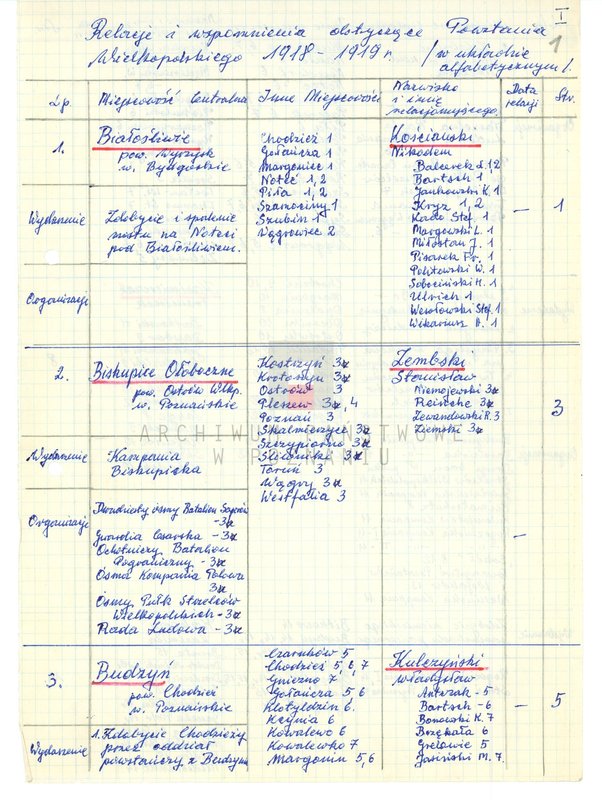 Relacje i wspomnienia dotyczące Powstania
Wielkopolskiego 1918 - 1919 r. /w układzie
alfabetycznym/.
I
1
Lp.
Miejscowość Centralna
Inne Miejscowości
Nazwisko
i imię
relacjonującego
Data
relacji
Str.
1.
Białośliwie
pow. Wyrzysk
w. Bydgoskie
Chodzież 1
Gołańcza 1
Margoniec 1
Noteć 1, 2
Piła 1, 2
Szamociny 1
Szubin 1
Wągrowiec 2
Kościański
Nikodem
Balcerek J. 1,2
Bartsch 1
Jankowski K. 1
Kryz 1, 2
Kado Stef. 1
Margowski L. 1
Miłostan J. 1
Pisarek Fr. 1
Politewski W. 1
Sobociński H. 1
Ulrich 1
Wesołowski Stef. 1
Wikariusz B. 1
-
1
Wydarzenie
Zdobycie i spalenie
mostu na Noteci
pod Białośliwiem.
Organizacje
2.
Biskupice Ołoboczne
pow. Ostrów Wlkp.
w. Poznańskie
Kostrzyń 3a
Krotoszyn 3a
Ostrów 3
Pleszew 3a, 4
Poznań 3
Skalmierzyce 3a
Szczypiorno 3a
Śliwniki 3a
Toruń 3
Węgry 3a
Westfalia 3
Zembski
Stanisław
Niemojewski 3a
Reische 3a
Lewandowski R. 3
Ziemski 3a
3
Wydarzenie
Kampania
Biskupicka
Organizacje
Dwudziesty ósmy Batalion Saperów
- 3a
Gwardia Cesarska - 3a
Ochotniczy Batalion
Pograniczny - 3a
Ósma Kompania Polowa
3a
Ósmy Pułk Strzelców
Wielkopolskich - 3a
Rada Ludowa - 3a
-
ARCHIWUM PAŃSTWOWE
W POZNANIU
3.
Budzyń
pow. Chodzież
w. Poznańskie
Czarnków 5
Chodzież 5, 6, 7
Gniezno 7
Gołańcza 5, 6
Klotyldzin 6
Kcynia 6
Kowalewo 6
Kowalewko 7
Margonin 5, 6
Kulczyński
Władysław
Antczak - 5
Bartsch - 6
Bonowski K. 7
Brzękała 6
Grelowic 5
Jasiński M. 7
-
5
Wydarzenie
1. Zdobycie Chodzieży
przez oddział
powstańczy z Budzynia